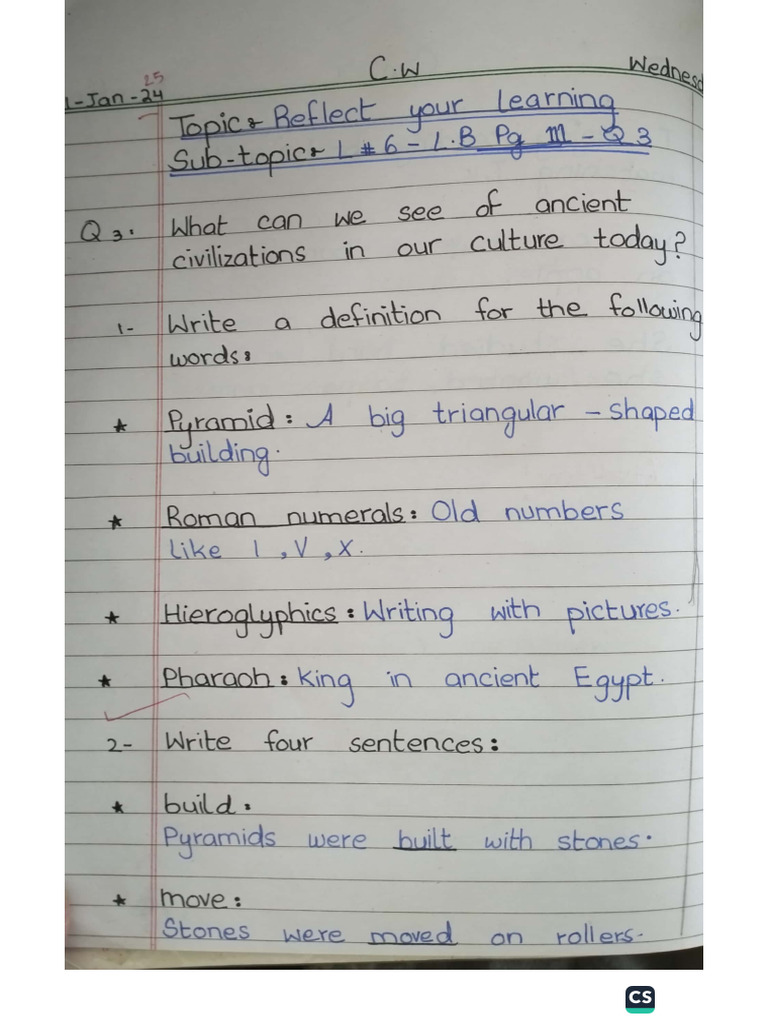 25
C.W
Wednesd
1-Jan-24
Topic: Reflect your Learning
Sub-topic: L # 6 - L.B Pg 111 - Q 3
Q 3: What can we see of ancient
civilizations in our culture today?
1- Write a definition for the following
words:
★ Pyramid: A big triangular - shaped
building.
★ Roman numerals: Old numbers
like I, V, X.
★ Hieroglyphics: Writing with pictures.
★ Pharaoh: King in ancient Egypt.
2- Write four sentences:
★ build:
Pyramids were built with stones.
★ move:
Stones were moved on rollers.
CS